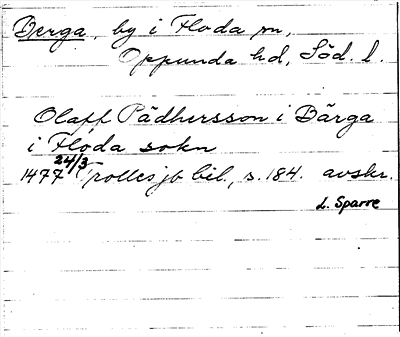 Berga, by i Floda sn,
Oppunda hd, Söd. l.
Olaff Pädhersson i Bärga
i Floda sokn
1477 24/3 jb bil., s. 184. avskr.
L. Sparre